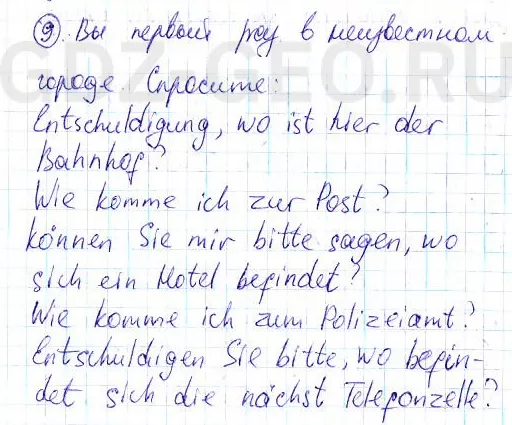 9. Вы первый раз в неизвестном
городе. Спросите:
Entschuldigung, wo ist hier der
Bahnhof?
Wie komme ich zur Post?
können Sie mir bitte sagen, wo
sich ein Hotel befindet?
Wie komme ich zum Polizeiamt?
Entschuldigen Sie bitte, wo befin-
det sich die nächst Telefonzelle?
GDZ-GEO.RU